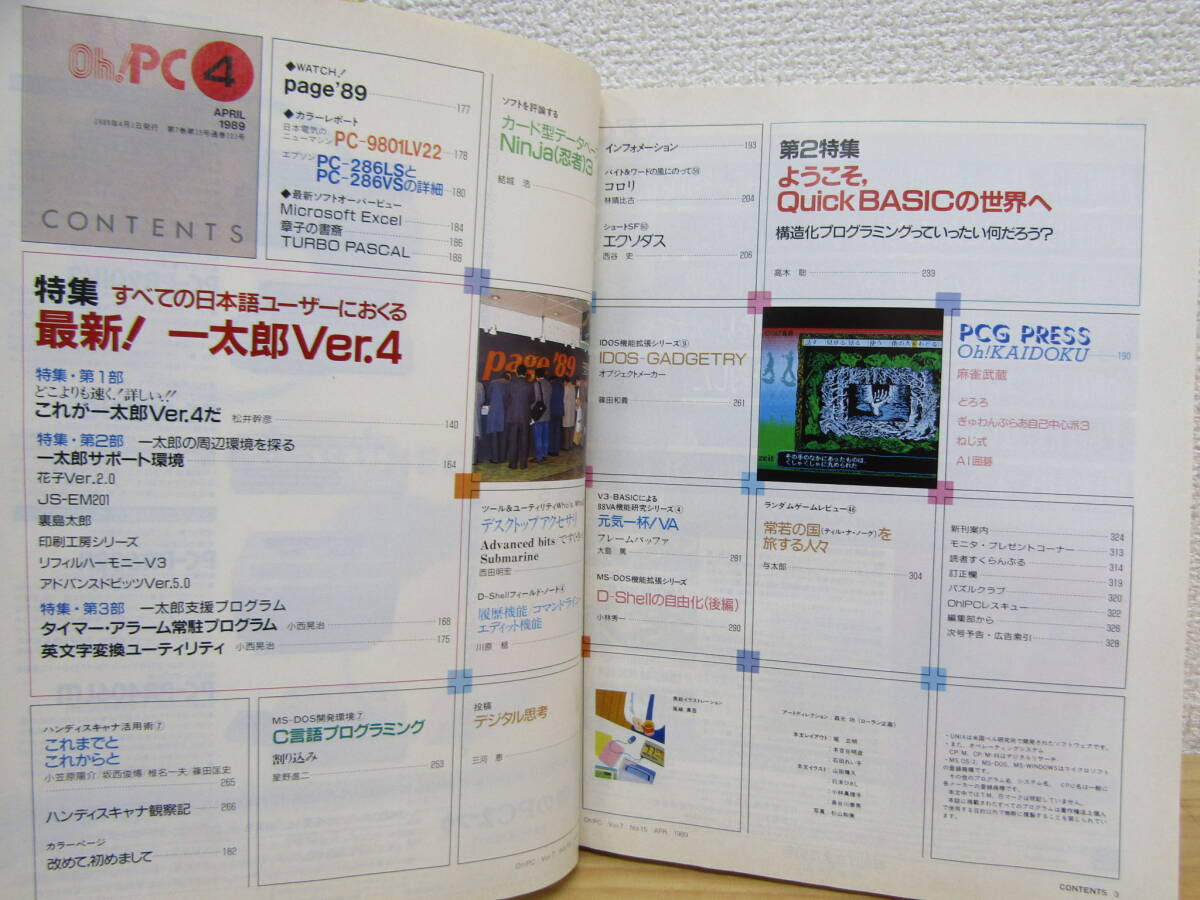 Oh!PC 4
APRIL
1989
CONTENTS
◆WATCH!
page'89 177
◆カラーレポート
日本電気の
ニューマシン PC-9801LV22 178
エプソン PC-286LSと
PC-286VSの詳細 180
◆最新ソフトオーバービュー
Microsoft Excel 184
章子の書斎 186
TURBO PASCAL 188
ソフトを評論する
カード型データベー
Ninja(忍者)3
結城 浩
特集 すべての日本語ユーザーにおくる
最新! 一太郎Ver.4
特集・第1部
どこよりも速く!詳しい!!
これが一太郎Ver.4だ 松井幹彦 140
特集・第2部 一太郎の周辺環境を探る
一太郎サポート環境 164
花子Ver.2.0
JS-EM201
裏島太郎
印刷工房シリーズ
リフィルハーモニーV3
アドバンスドビッツVer.5.0
特集・第3部 一太郎支援プログラム
タイマー・アラーム常駐プログラム 小西晃治 168
英文字変換ユーティリティ 小西晃治 175
page'89
ツール&ユーティリティWho's Who
デスクトップアクセサリ
Advanced bits/ですくと
Submarine
西田明宏
D-Shellフィールド・ノート④
履歴機能/コマンドライン
エディット機能
川原 稔
ハンディスキャナ活用術⑦
これまでと
これからと
小笠原陽介 坂西俊博 椎名一夫 篠田匡史
265
ハンディスキャナ観察記 266
カラーページ
改めて,初めまして 182
MS-DOS開発環境⑦
C言語プログラミング
割り込み
星野進二 253
投稿
デジタル思考
三河 恵
インフォメーション 193
バイト&ワードの風にのって
コロリ
林晴比古 204
ショートSF
エクソダス
西谷 史 206
第2特集
ようこそ,
QuickBASICの世界へ
構造化プログラミングっていったい何だろう?
高木 聡 233
IDOS機能拡張シリーズ⑨
IDOS-GADGETRY
オブジェクトメーカー
篠田和義 261
その手のなかにあったものは、
くしゃくしゃに丸められた
PCG PRESS
Oh!KAIDOKU 190
麻雀武蔵
どろろ
ぎゅわんぶらあ自己中心派3
ねじ式
AI囲碁
V3-BASICによる
88VA機能研究シリーズ④
元気一杯/VA
フレームバッファ
大島 篤 281
MS-DOS機能拡張シリーズ
D-Shellの自由化(後編)
小林秀一 290
ランダムゲームレビュー㊻
常若の国(ティル・ナ・ノーグ)を
旅する人々
与太郎 304
新刊案内 324
モニタ・プレゼントコーナー 313
読者すくらんぶる 314
訂正欄 319
パズルクラブ 320
Oh!PCレスキュー 322
編集部から 326
次号予告・広告索引 328
表紙イラストレーション
アートディレクション
本文レイアウト
本文イラスト
・UNIXは米国ベル研究所で開発されたソフトウェアです。
・また,オペレーティングシステム
Oh!PC Vol.7 No.15 APR. 1989
CONTENTS 3